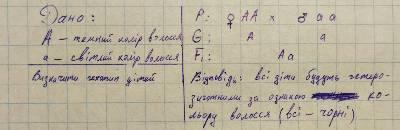 Дано:
А – темний колір волосся
а – світлий колір волосся
Визначити генотип дітей
P: ♀ АА × ♂ аа
G: А а
F₁: Аа
Відповідь: всі діти будуть гетеро-
зиготними за ознакою ко-
льору волосся (всі – чорні)